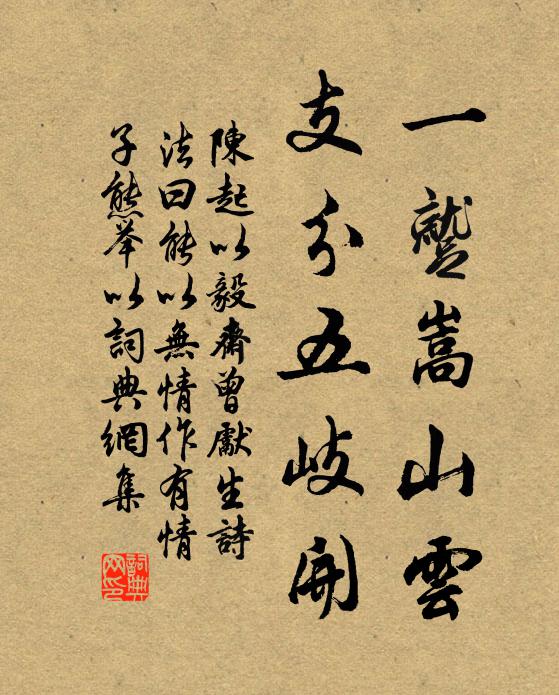 一蹵嵩山雲
支分五岐開
陳起以毅齋曾獻生詩
法曰能以無情作有情
子熊举以詞典網集
詞典
网印